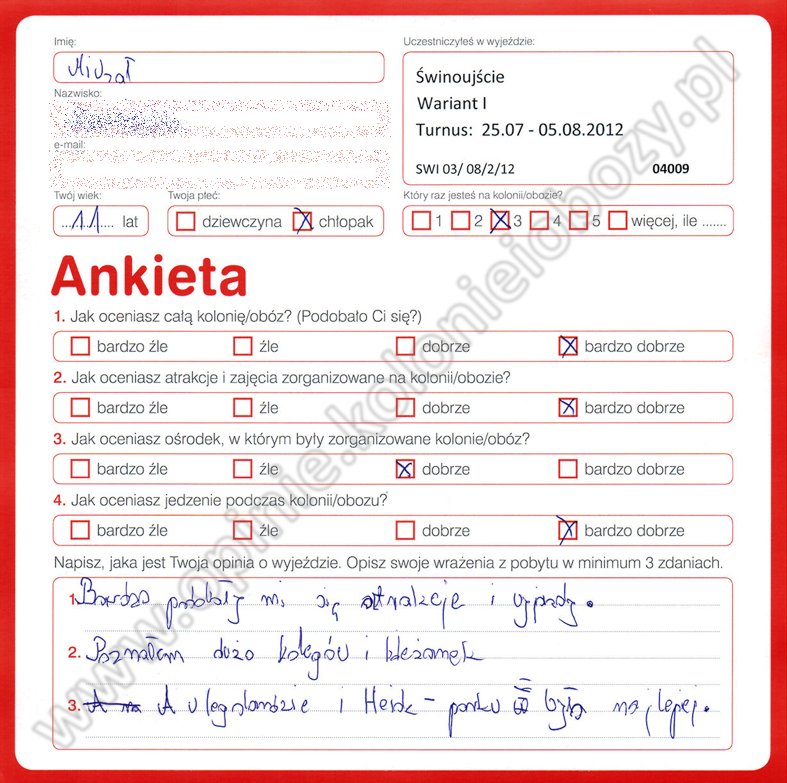 Imię:
Michał
Uczestniczyłeś w wyjeździe:
Świnoujście
Wariant I
Turnus: 25.07 - 05.08.2012
SWI 03/ 08/2/12 04009
Nazwisko:
e-mail:
Twój wiek:
...11... lat
Twoja płeć:
dziewczyna chłopak
Który raz jesteś na kolonii/obozie?
1 2 3 4 5 więcej, ile .......
Ankieta
1. Jak oceniasz całą kolonię/obóz? (Podobało Ci się?)
bardzo źle źle dobrze bardzo dobrze
2. Jak oceniasz atrakcje i zajęcia zorganizowane na kolonii/obozie?
bardzo źle źle dobrze bardzo dobrze
3. Jak oceniasz ośrodek, w którym były zorganizowane kolonie/obóz?
bardzo źle źle dobrze bardzo dobrze
4. Jak oceniasz jedzenie podczas kolonii/obozu?
bardzo źle źle dobrze bardzo dobrze
Napisz, jaka jest Twoja opinia o wyjeździe. Opisz swoje wrażenia z pobytu w minimum 3 zdaniach.
1. Bardzo podobały mi się atrakcje i wyjazdy.
2. Poznałem dużo kolegów i koleżanek
3. A w legolandzie i Heide - parku było najlepiej.
www.opinie.kolonieiobozy.pl